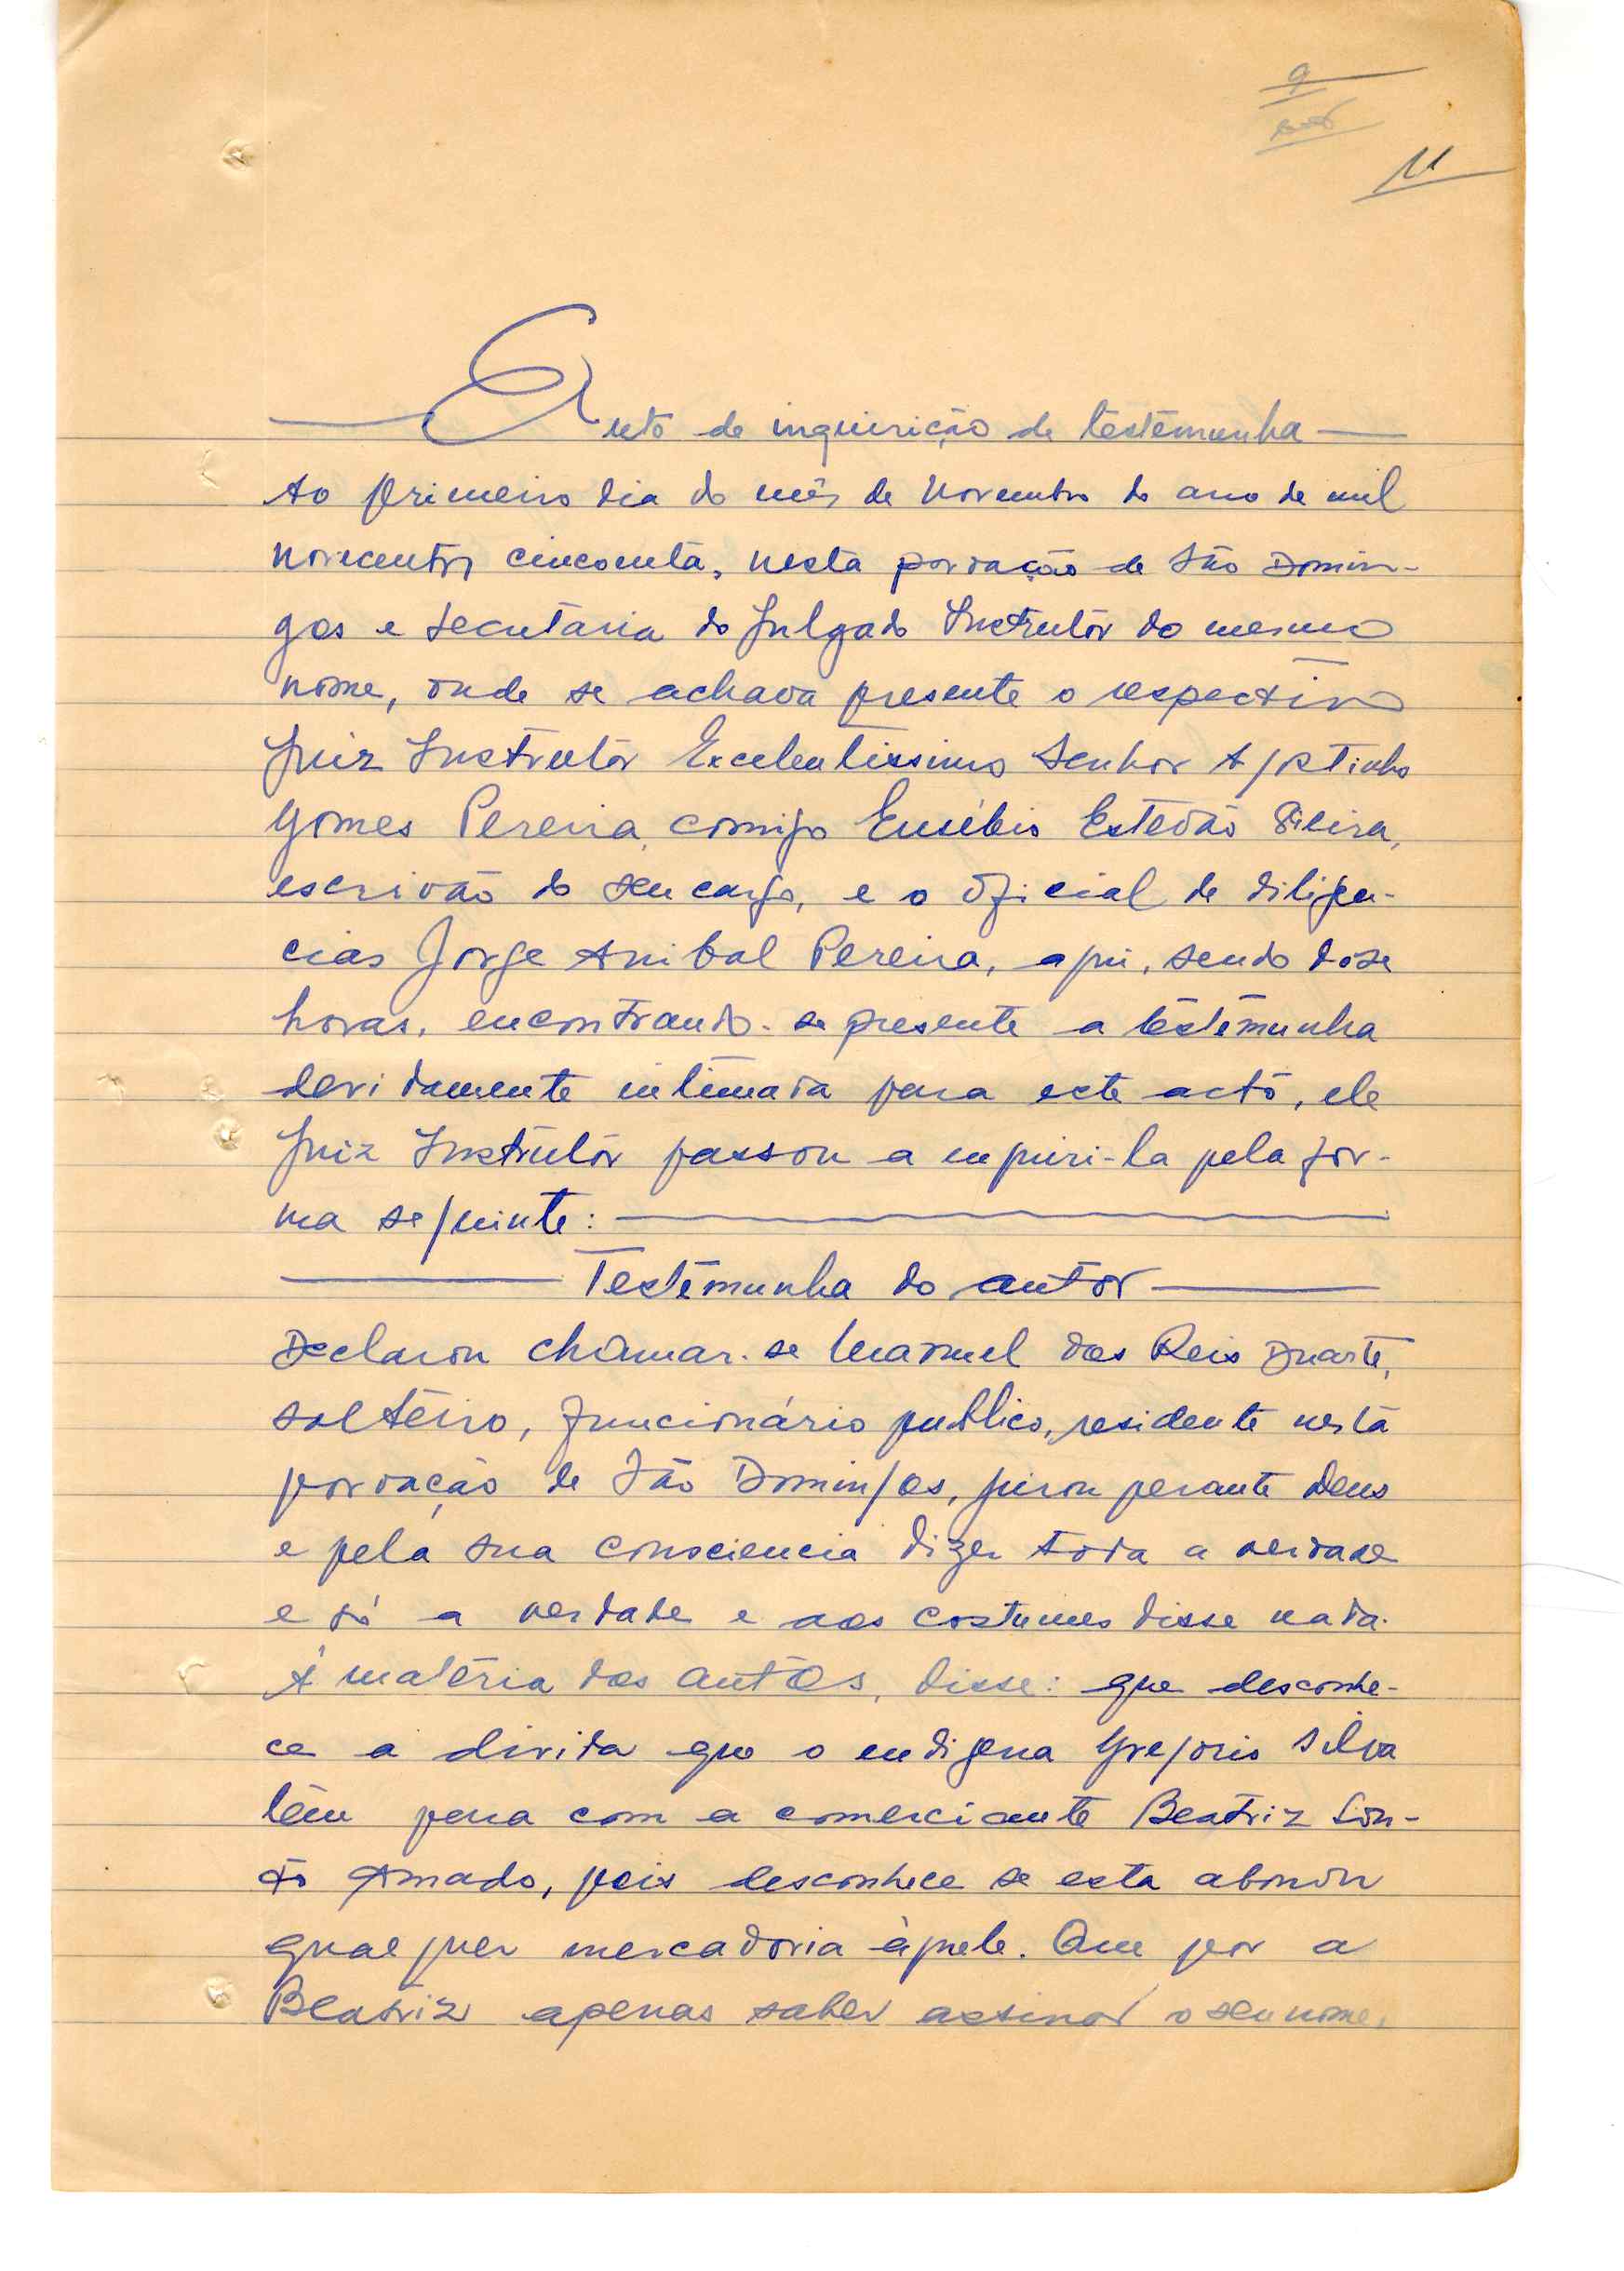 9
11
Auto de inquirição de testemunha
Ao primeiro dia do mês de Novembro do ano de mil
novecentos cincoenta, nesta povoação de São Domin-
gos e secretaria do Julgado Instrutor do mesmo
nome, onde se achava presente o respectivo
Juiz Instrutor Excelentissimo Senhor Agostinho
Gomes Pereira, comigo Eusébio Estevão Vieira,
escrivão do seu cargo, e o oficial de diligen-
cias Jorge Anibal Pereira, aqui, sendo dose
horas, encontrando-se presente a testemunha
devidamente intimada para este acto, ele
Juiz Instrutor passou a inquiri-la pela for-
ma seguinte:
Testemunha do autor
Declarou chamar-se Manuel dos Reis Duarte,
solteiro, funcionário publico, residente nesta
povoação de São Domingos, jurou perante Deus
e pela sua consciencia dizer toda a verdade
e só a verdade e aos costumes disse nada.
Á matéria dos autos, disse: que desconhe-
ce a divida que o indigena Gregorio Silva
têm para com a comerciante Beatriz Son-
to Amado, pois desconhece se esta abonou
qualquer mercadoria àquele. Que por a
Beatriz apenas saber assinar o seu nome,